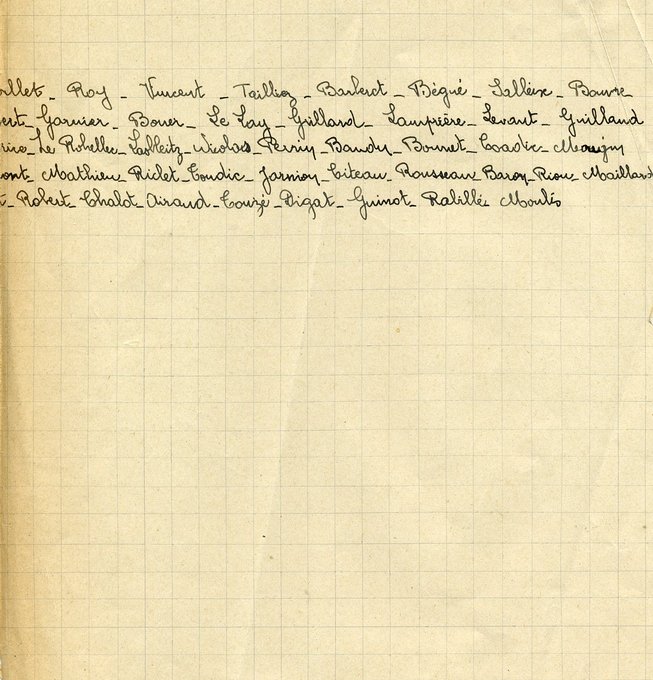 illet _ Roy _ Vincent _ Taillez _ Barberet _ Bégué _ _ Bavre
bert _ Garnier _ Boner _ Le Lay _ Guillard _ Lamprière _ Levant _ Guilland
rice _ Le Robellec _ _ Nicolas _ Perrin _ Baudu _ Bonnet _ Coadic _ Maugin
ont _ Mathieu Riclet _ Coudic _ Jarniou _ Citeau _ Rousseau Baron _ Riou _ Maillard
t _ Robert _ Chalot _ Airaud _ Couzé _ Digat _ Guinot _ Rabillé Moulés